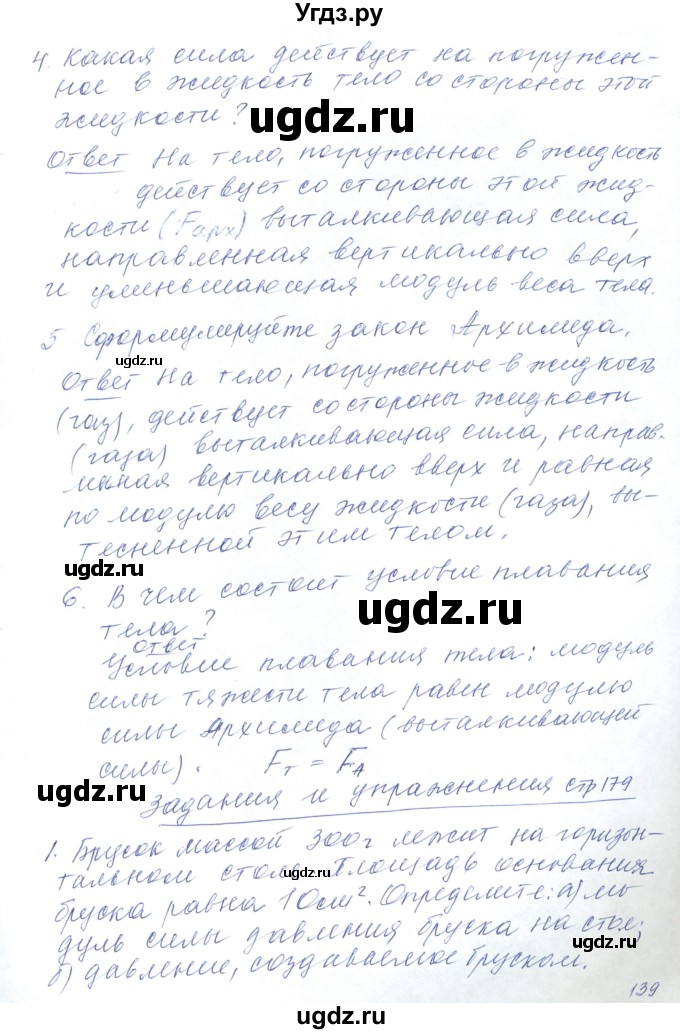 Угдз.ру
4. Какая сила действует на погружен-
ное в жидкость тело со стороны этой
жидкости?
ugdz.ru
Ответ На тело, погруженное в жидкость
действует со стороны этой жид-
кости (Fарх) выталкивающая сила,
направленная вертикально вверх
и уменьшающая модуль веса тела.
5 Сформулируйте закон Архимеда.
ugdz.ru
Ответ На тело, погруженное в жидкость
(газ), действует со стороны жидкости
(газа) выталкивающая сила, направ-
ленная вертикально вверх и равная
по модулю весу жидкости (газа), вы-
тесненной этим телом.
ugdz.ru
6. В чем состоит условие плавания
тела?
ugdz.ru
Ответ
Условие плавания тела: модуль
силы тяжести тела равен модулю
силы Архимеда (выталкивающей
силы). Fт = FА
ugdz.ru
Задания и упражнения стр 179
1. Брусок массой 300г лежит на горизон-
тальном столе. Площадь основания
ugdz.ru
бруска равна 10см². Определите: а) мо
дуль силы давления бруска на стол;
б) давление, создаваемое бруском.
139
ugdz.ru
ugdz.ru